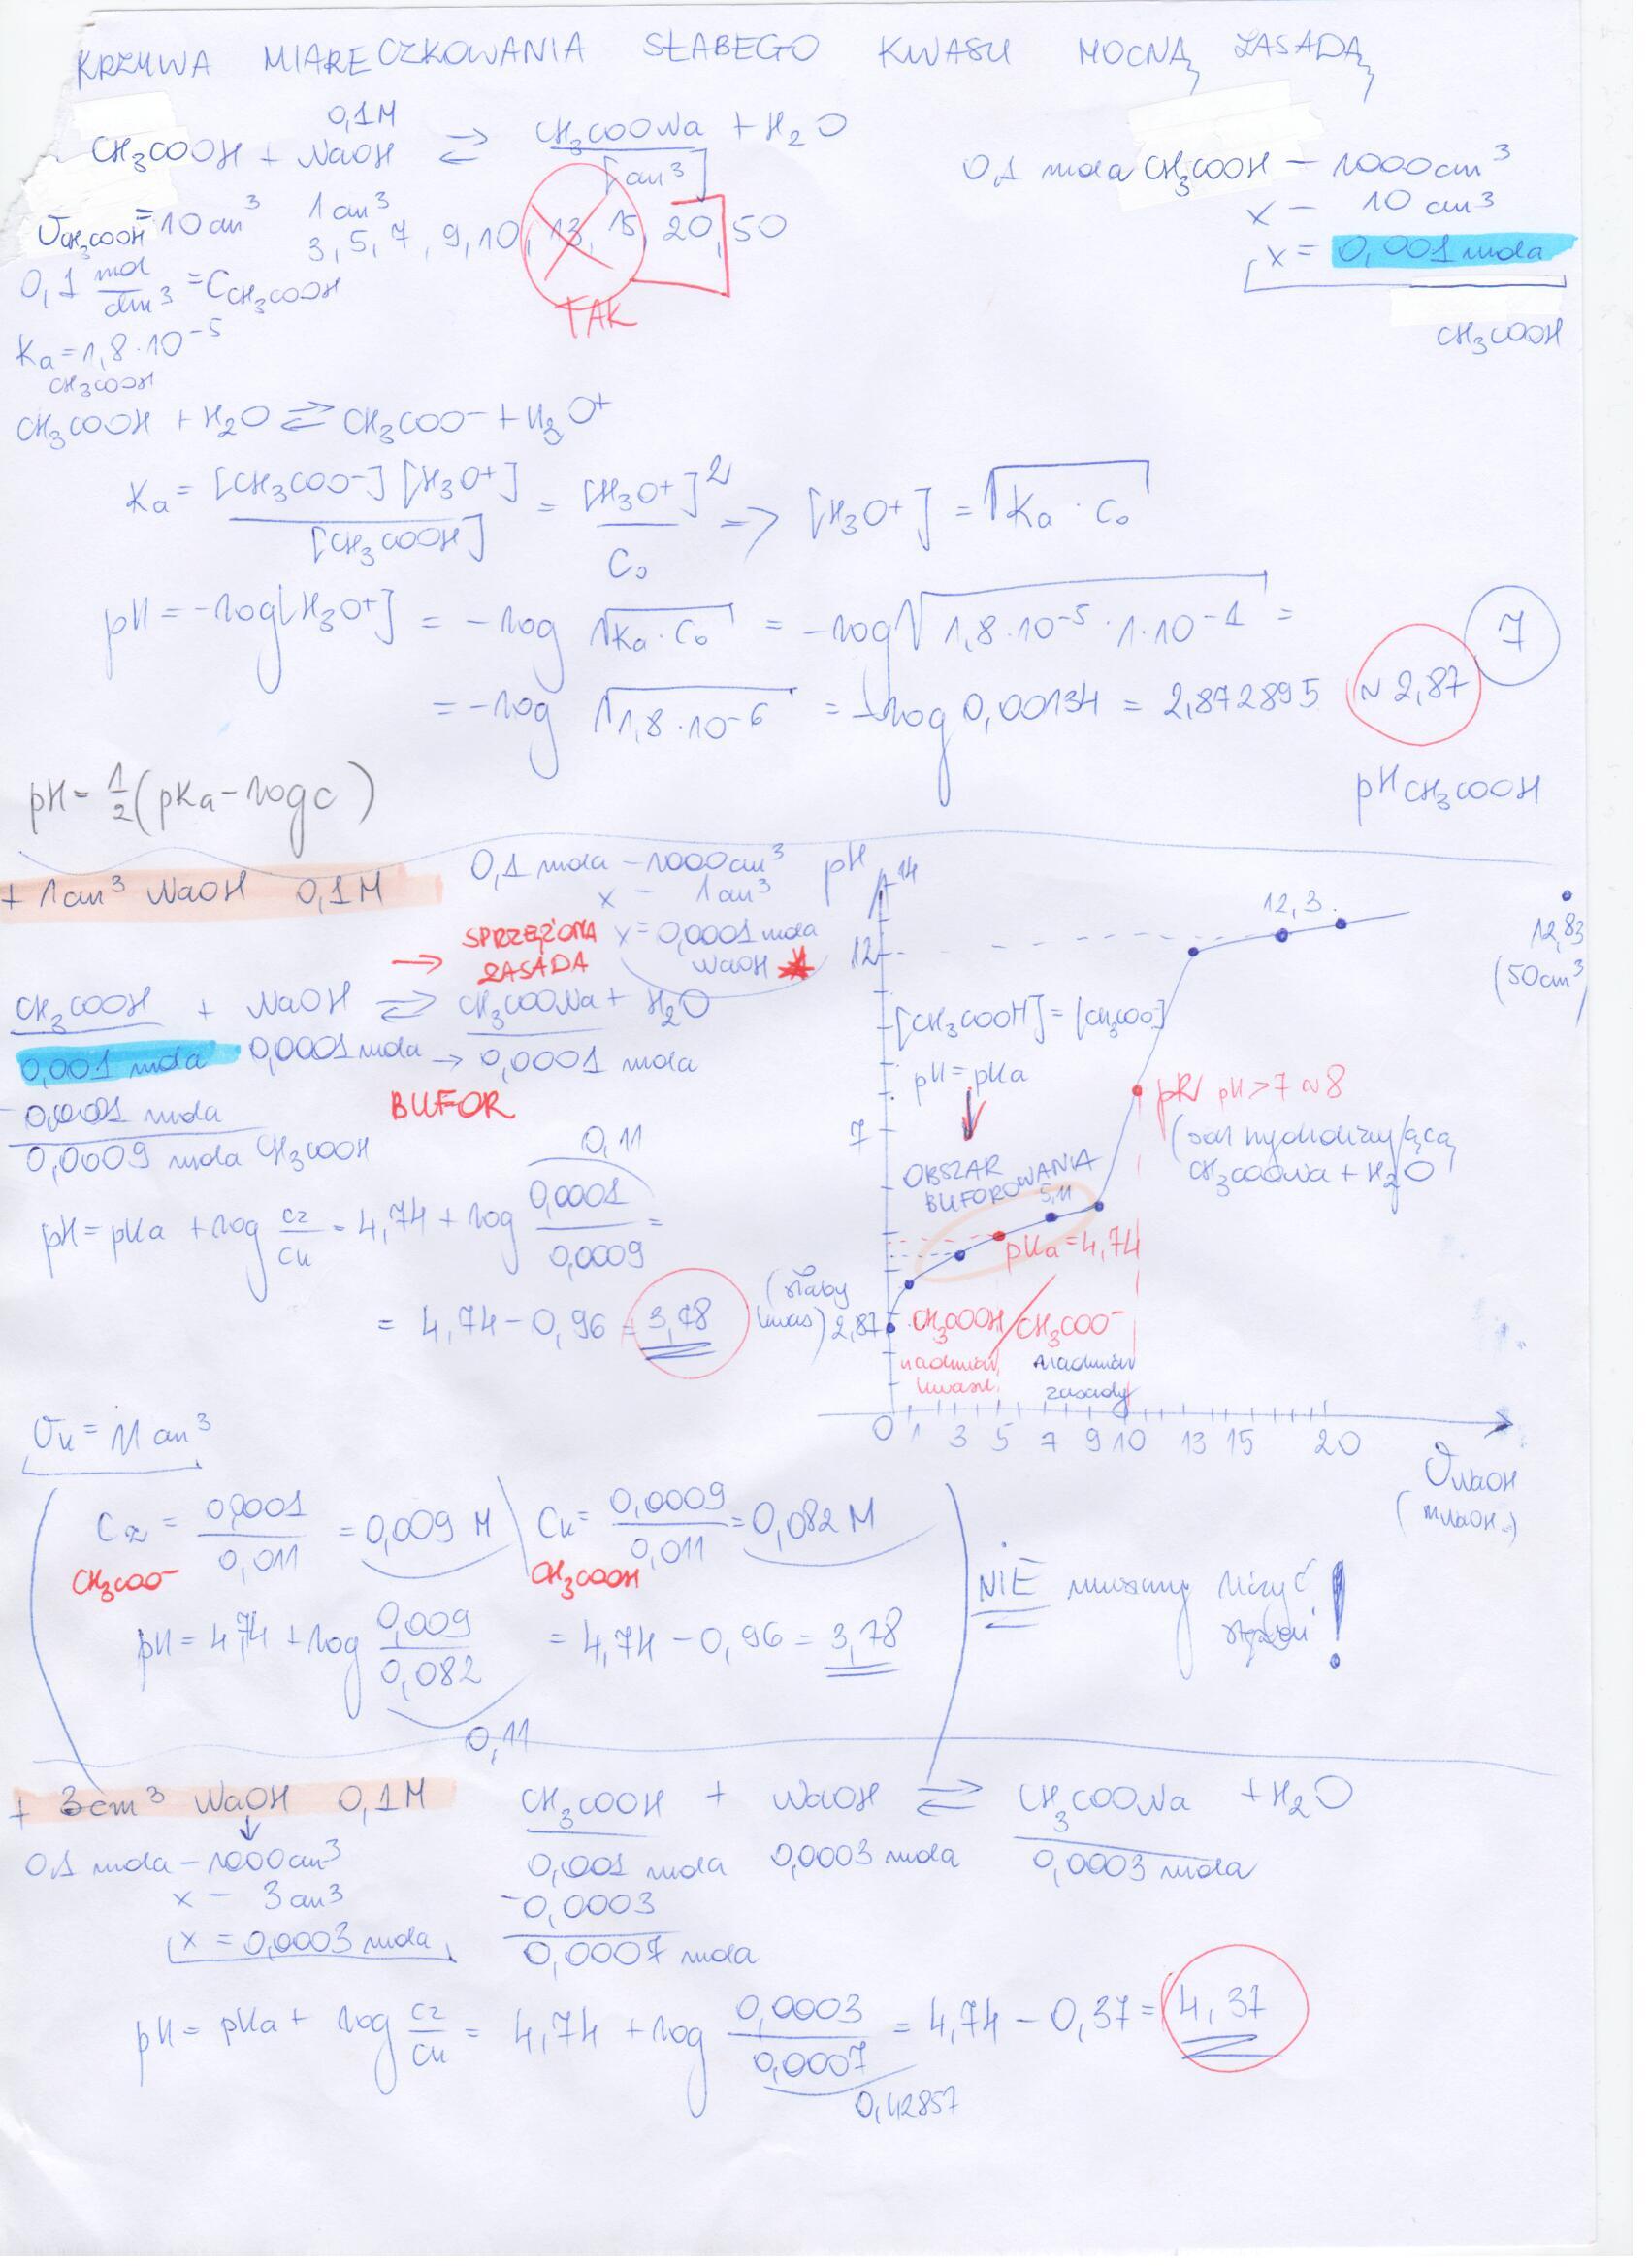 KRZYWA MIARECZKOWANIA SŁABEGO KWASU MOCNĄ ZASADĄ
0,1M
CH₃COOH + NaOH ⇄ CH₃COONa + H₂O
[cm³]
V CH₃COOH = 10 cm³ 1 cm³
3, 5, 7, 9, 10, 13, 15, 20, 50
TAK
0,1 mol/dm³ = C CH₃COOH
Ka = 1,8·10⁻⁵
CH₃COOH
0,1 mola CH₃COOH – 1000 cm³
x – 10 cm³
x = 0,001 mola
CH₃COOH
CH₃COOH + H₂O ⇄ CH₃COO⁻ + H₃O⁺
Ka = [CH₃COO⁻][H₃O⁺] / [CH₃COOH] = [H₃O⁺]² / C₀ => [H₃O⁺] = √(Ka · C₀)
pH = -log[H₃O⁺] = -log √(Ka · C₀) = -log √(1,8·10⁻⁵ · 1·10⁻¹) =
= -log √(1,8·10⁻⁶) = -log 0,00134 = 2,872895 ≈ 2,87
7
pH CH₃COOH
pH = ½ (pKa - log c)
+ 1 cm³ NaOH 0,1M
0,1 mola – 1000 cm³
x – 1 cm³
x = 0,0001 mola
NaOH
→ SPRZĘŻONA
ZASADA
CH₃COOH + NaOH ⇄ CH₃COONa + H₂O
0,001 mola 0,0001 mola → 0,0001 mola
- 0,0001 mola
BUFOR
0,0009 mola CH₃COOH
0,11
pH = pKa + log cz/ck = 4,74 + log 0,0001/0,0009 =
= 4,74 - 0,96 = 3,78
pH
14
12,3
12
12,83
(50 cm³)
[CH₃COOH] = [CH₃COO⁻]
pH = pKa
7
PR/ pH > 7 ~ 8
(sól hydrolizująca
CH₃COONa + H₂O)
OBSZAR
BUFOROWANIA
5,11
pKa = 4,74
(słaby
kwas) 2,87
CH₃COOH/CH₃COO⁻
nadmiar kwasu
nadmiar zasady
0 1 3 5 7 9 10 13 15 20
V NaOH
(mNaOH)
Vk = 11 cm³
Cz = 0,0001/0,011 = 0,009 M
CH₃COO⁻
Ck = 0,0009/0,011 = 0,082 M
CH₃COOH
pH = 4,74 + log 0,009/0,082 = 4,74 - 0,96 = 3,78
0,11
NIE musimy liczyć
stężeń !
+ 3 cm³ NaOH 0,1M
CH₃COOH + NaOH ⇄ CH₃COONa + H₂O
0,1 mola – 1000 cm³
x – 3 cm³
x = 0,0003 mola
0,001 mola 0,0003 mola 0,0003 mola
- 0,0003
0,0007 mola
pH = pKa + log cz/ck = 4,74 + log 0,0003/0,0007 = 4,74 - 0,37 = 4,37
0,42857